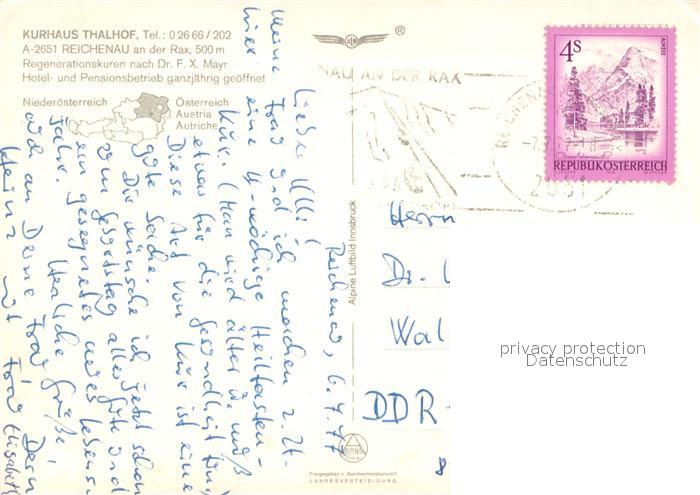 KURHAUS THALHOF, Tel.: 0 26 66 / 202
A-2651 REICHENAU an der Rax, 500 m
Regenerationskuren nach Dr. F. X. Mayr
Hotel- und Pensionsbetrieb ganzjährig geöffnet
Niederösterreich
Österreich
Austria
Autriche
®
NAU AN DER RAX
4S
ALMSEE
REPUBLIK ÖSTERREICH
2651
Reichenau, 6.7.77
Lieber Ulli!
Meine Frau und ich machen z. Zt.
hier eine 4-wöchige Heilfasten-
Kur. (Man wird älter u. muß
etwas für die Gesundheit tun,
Diese Art von Kur ist eine
gute Sache.
Dir wünsche ich jetzt schon
zum Geburtstag alles Gute und
ein gesegnetes neues Lebens-
jahr. Herzliche Grüße,
auch an Deine Frau, Dein
Heinz mit Frau Elisabeth
Alpine Luftbild Innsbruck
Herrn
Dr.
Wal
DDR -
8
privacy protection
Datenschutz
ALPINE
Freigegeben v. Bundesministerium f.
LANDESVERTEIDIGUNG